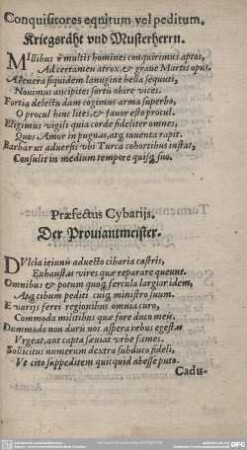 Conquisitores equitum vel peditum.
Kriegsräht vnd Musterherrn.
MIllibus è multis homines conquirimus aptos,
Ad certamen atrox, & graue Martis opus.
At genera siquidem lanugine bella sequuti,
Nouimus ancipites sortis obire vices.
Fortia delectu dum cogimus arma superbo,
O procul hinc lites, & fauor esto procul.
Eligimus vigili quia corde fideliter omnes,
Quos Amor in pugnas, atq; iuuenta rapit.
Barbarus aduersis vbi Turca cohortibus instat,
Consulit in medium tempore quisq; suo.
Præfectus Cybarijs.
Der Prouiantmeister.
DVlcia ieiunis aduecto cibaria castris,
Exhaustas vires quæ reparare queunt.
Omnibus & potum quoq; fercula largior idem,
Atq; cibum pediti cuiq; ministro suum.
E varijs ferri regionibus omnia curo,
Commoda militibus quæ fore duco meis.
Dummodo non duris nos aspera rebus egestas
Vrgeat, aut capta sæuiat vrbe fames.
Sollicitus numerum dextra subduco fideli,
Vt cito suppeditem quicquid abesse puto.
Cadu-